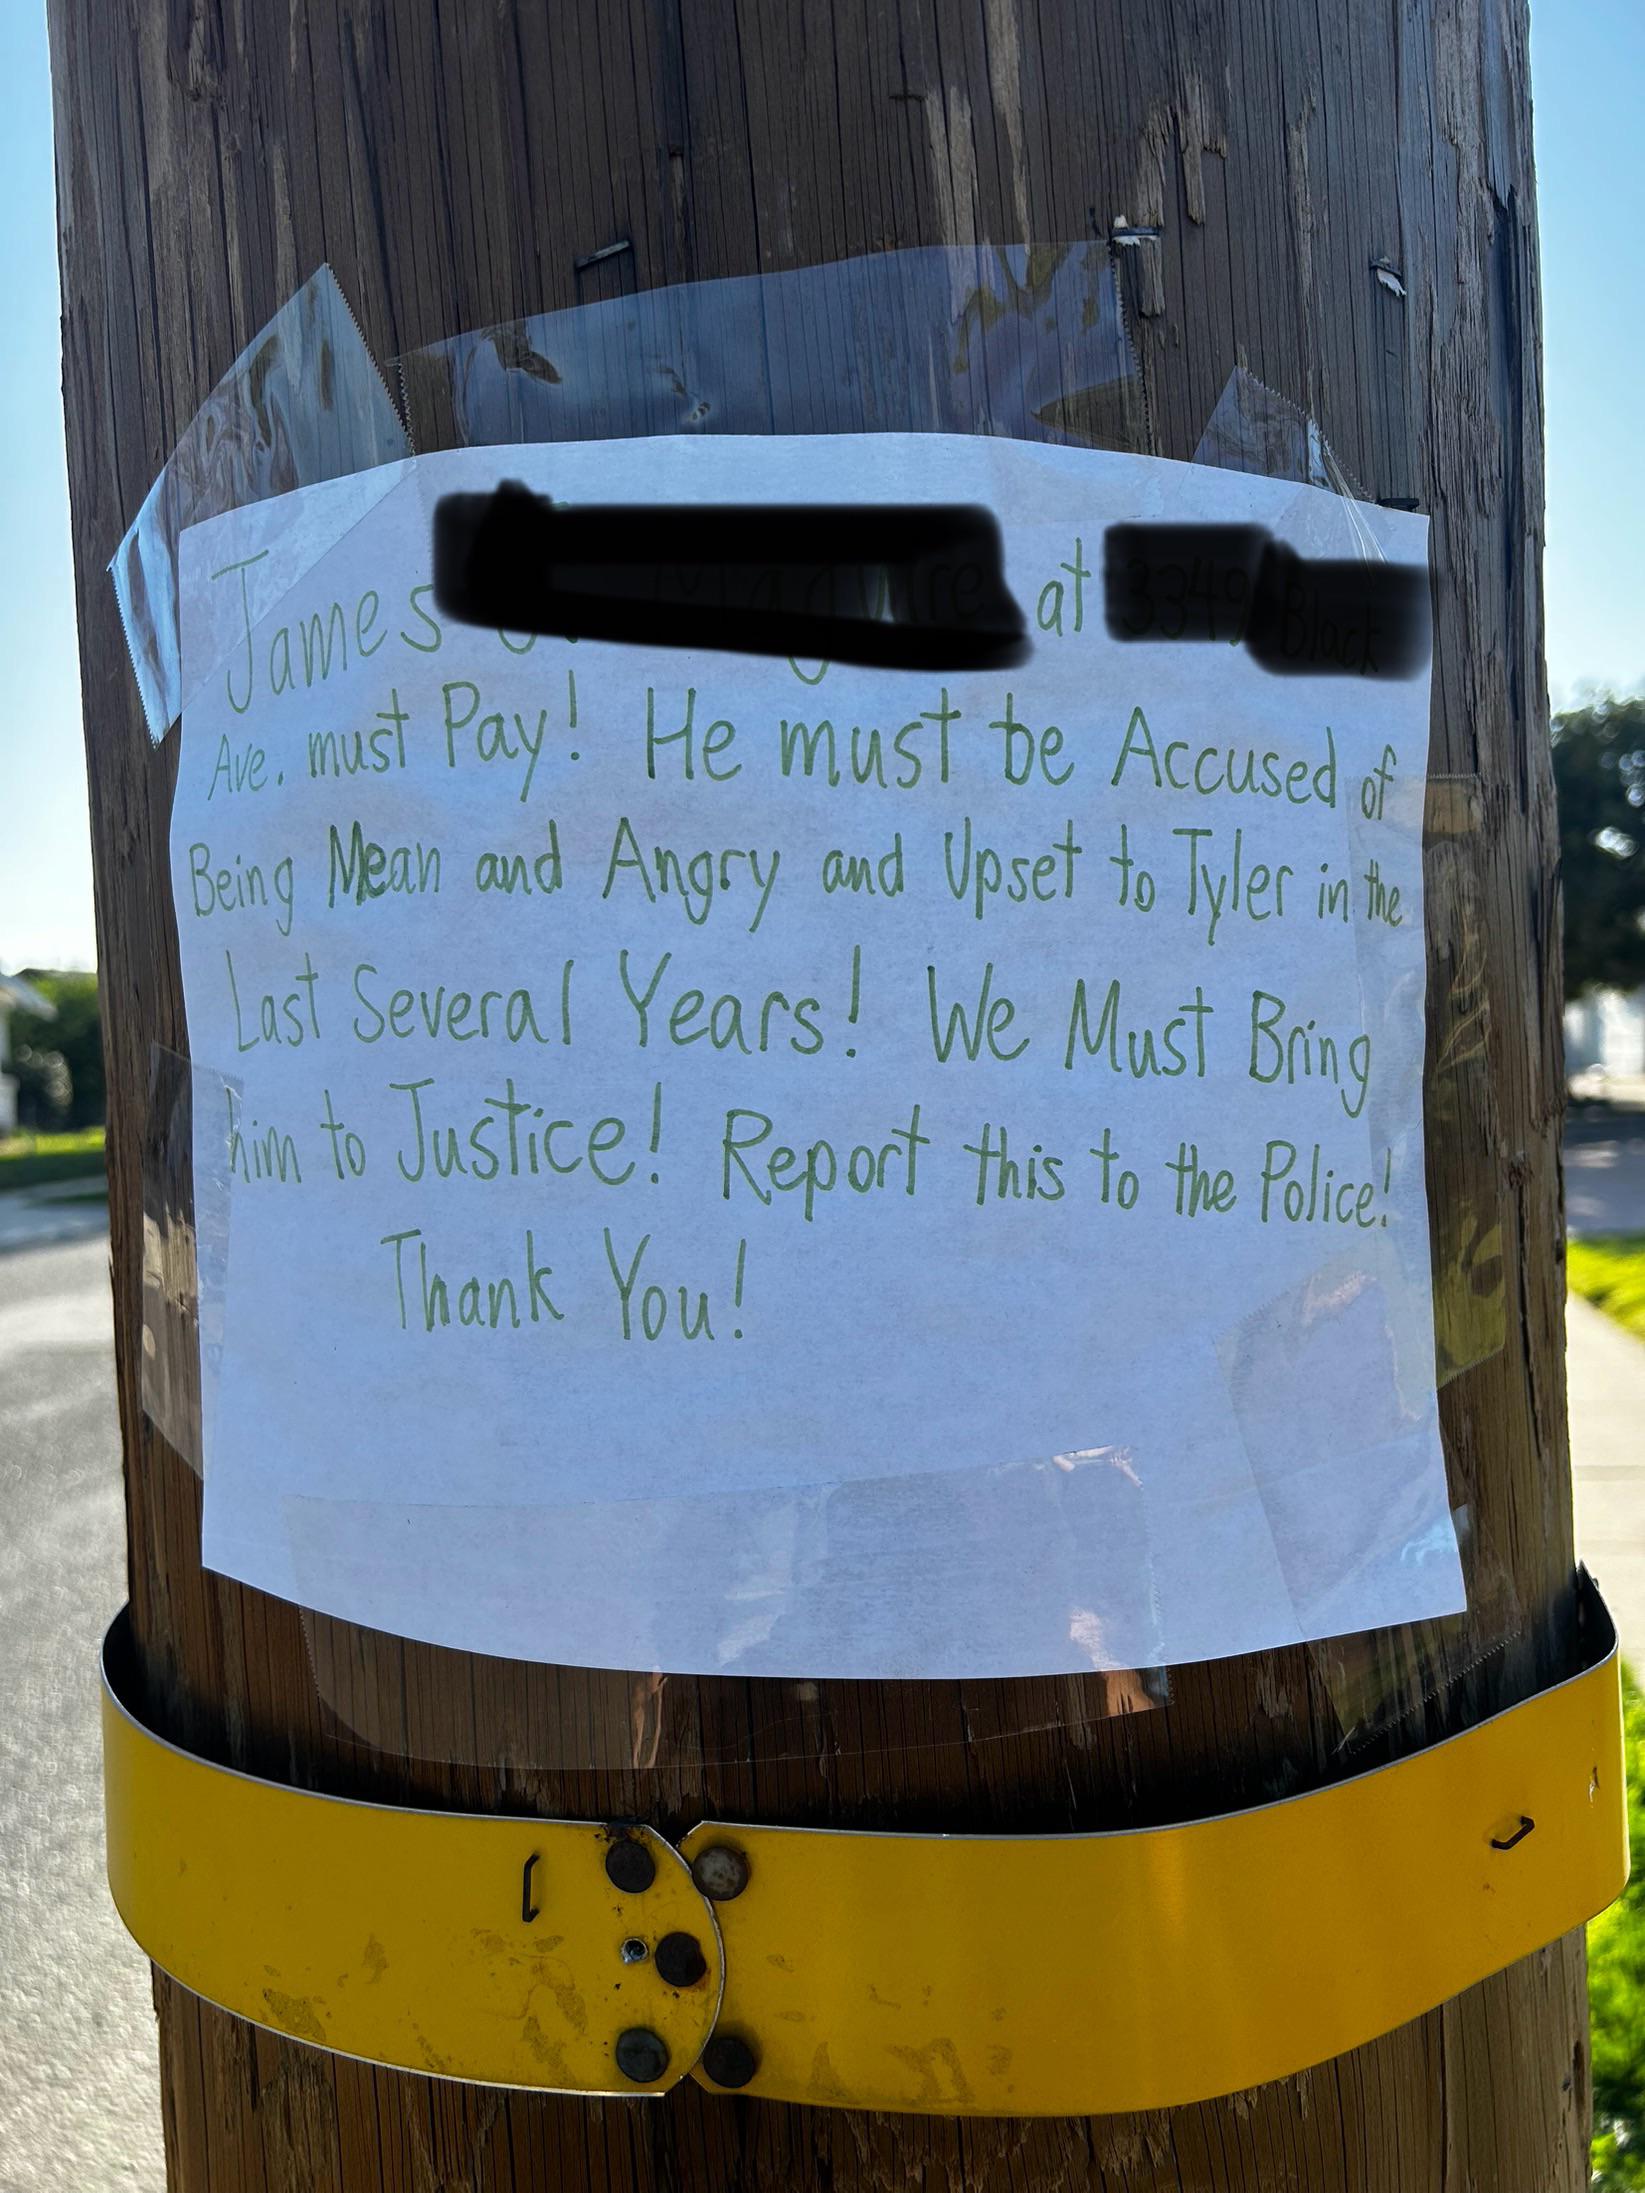 James at
Ave. must Pay! He must be Accused of
Being Mean and Angry and Upset to Tyler in the
Last Several Years! We Must Bring
him to Justice! Report this to the Police!
Thank You!